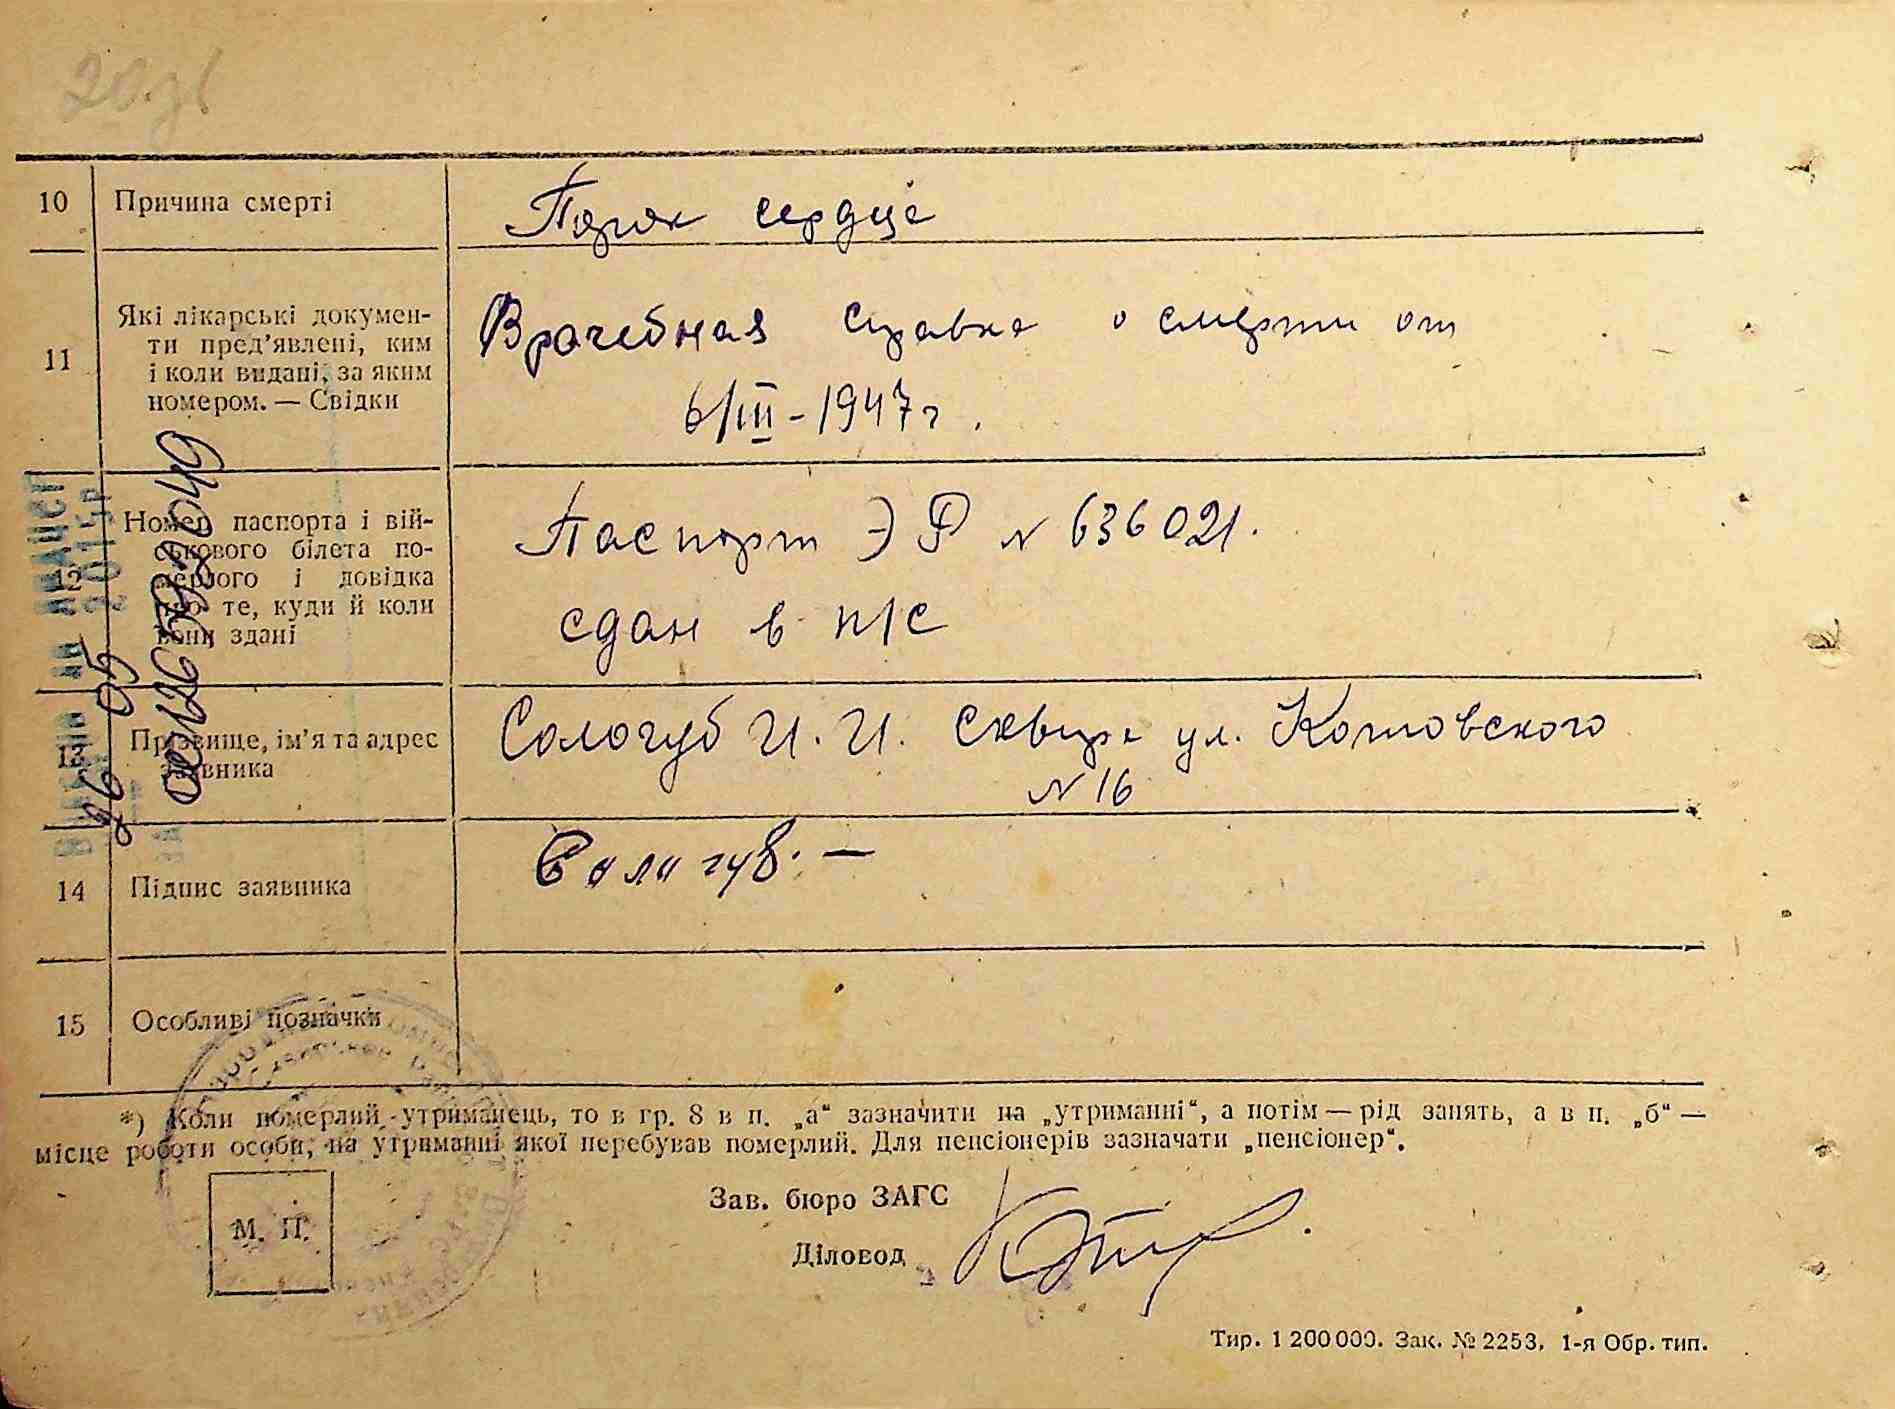 10 Причина смерті
Порок сердце
11 Які лікарські докумен-
ти пред’явлені, ким
і коли видані, за яким
номером. — Свідки
Врачебная справка о смерти от
6/III - 1947 г.
12 Номер паспорта і вій-
ськового білета по-
мерлого і довідка
про те, куди й коли
вони здані
Паспорт ЭР № 636021.
сдан в п/с
13 Прізвище, ім’я та адрес
заявника
Сологуб И. И. Сквира ул. Котовского
№ 16
14 Підпис заявника
Сологуб. —
15 Особливі позначки
*) Коли померлий - утриманець, то в гр. 8 в п. „а“ зазначити на „утриманні“, а потім — рід занять, а в п. „б“ —
місце роботи особи, на утриманні якої перебував померлий. Для пенсіонерів зазначати „пенсіонер“.
М. П.
Зав. бюро ЗАГС
Діловод
Тир. 1 200 000. Зак. № 2253. 1-я Обр. тип.